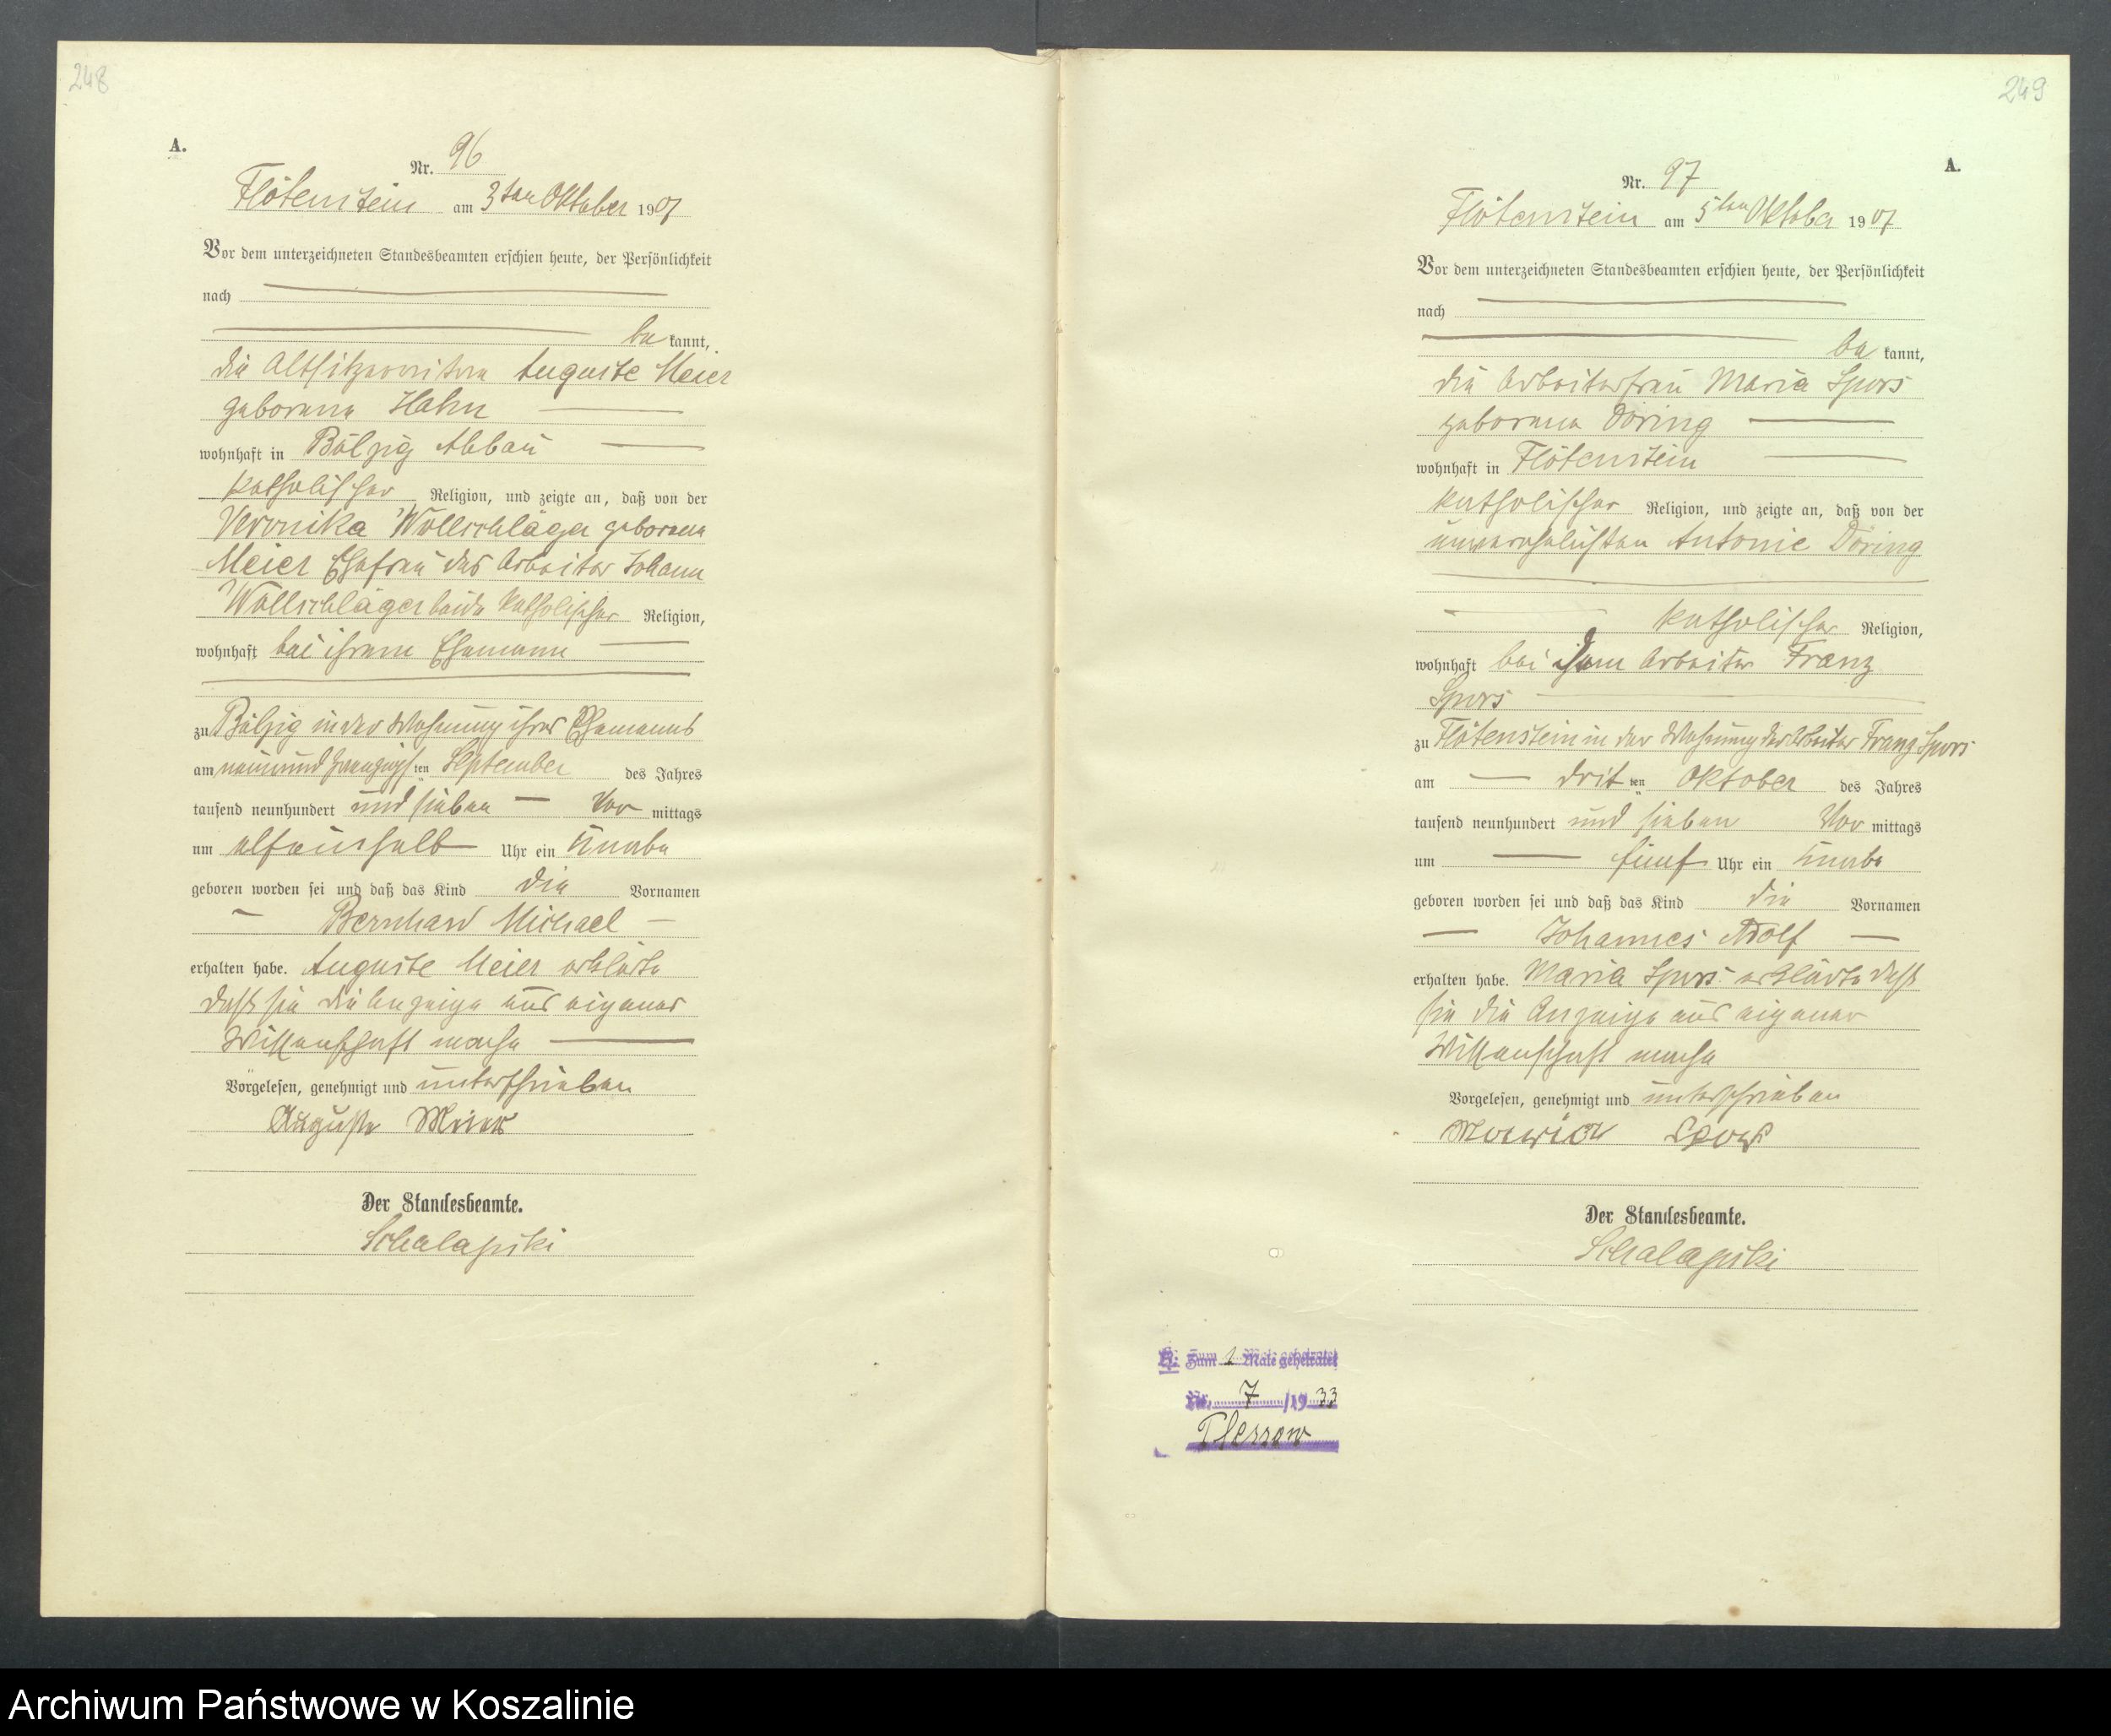 248
A.
Nr. 96
Flötenstein am 3ten Oktober 1907
Vor dem unterzeichneten Standesbeamten erschien heute, der Persönlichkeit
nach
be kannt,
die Altsitzerin Auguste Meier
geborene Hahn
wohnhaft in Bölzig Abbau
katholischer Religion, und zeigte an, daß von der
Veronika Wollschläger geborene
Meier Ehefrau des Arbeiter Johann
Wollschläger beide katholischer Religion,
wohnhaft bei ihrem Ehemann
zu Bölzig in der Wohnung ihres Ehemanns
am neunundzwanzigsten September des Jahres
tausend neunhundert und sieben Vor mittags
um elfeinhalb Uhr ein Knabe
geboren worden sei und daß das Kind die Vornamen
Bernhard Michael
erhalten habe. Auguste Meier erklärte
daß sie die Anzeige aus eigener
Wissenschaft mache
Vorgelesen, genehmigt und unterschrieben
Auguste Meier
Der Standesbeamte.
Schalapski
249
A.
Nr. 97
Flötenstein am 5ten Oktober 1907
Vor dem unterzeichneten Standesbeamten erschien heute, der Persönlichkeit
nach
be kannt,
die Arbeiterfrau Maria Spors
geborene Döring
wohnhaft in Flötenstein
katholischer Religion, und zeigte an, daß von der
unverehelichten Antonie Döring
katholischer Religion,
wohnhaft bei dem Arbeiter Franz
Spors
zu Flötenstein in der Wohnung des Arbeiter Franz Spors
am dritten Oktober des Jahres
tausend neunhundert und sieben Vor mittags
um fünf Uhr ein Knabe
geboren worden sei und daß das Kind die Vornamen
Johannes Adolf
erhalten habe. Maria Spors erklärte daß
sie die Anzeige aus eigener
Wissenschaft mache
Vorgelesen, genehmigt und unterschrieben
Spors
Der Standesbeamte.
Schalapski
Zum 1 Male geheiratet
Nr. 7 /19 33
Archiwum Państwowe w Koszalinie